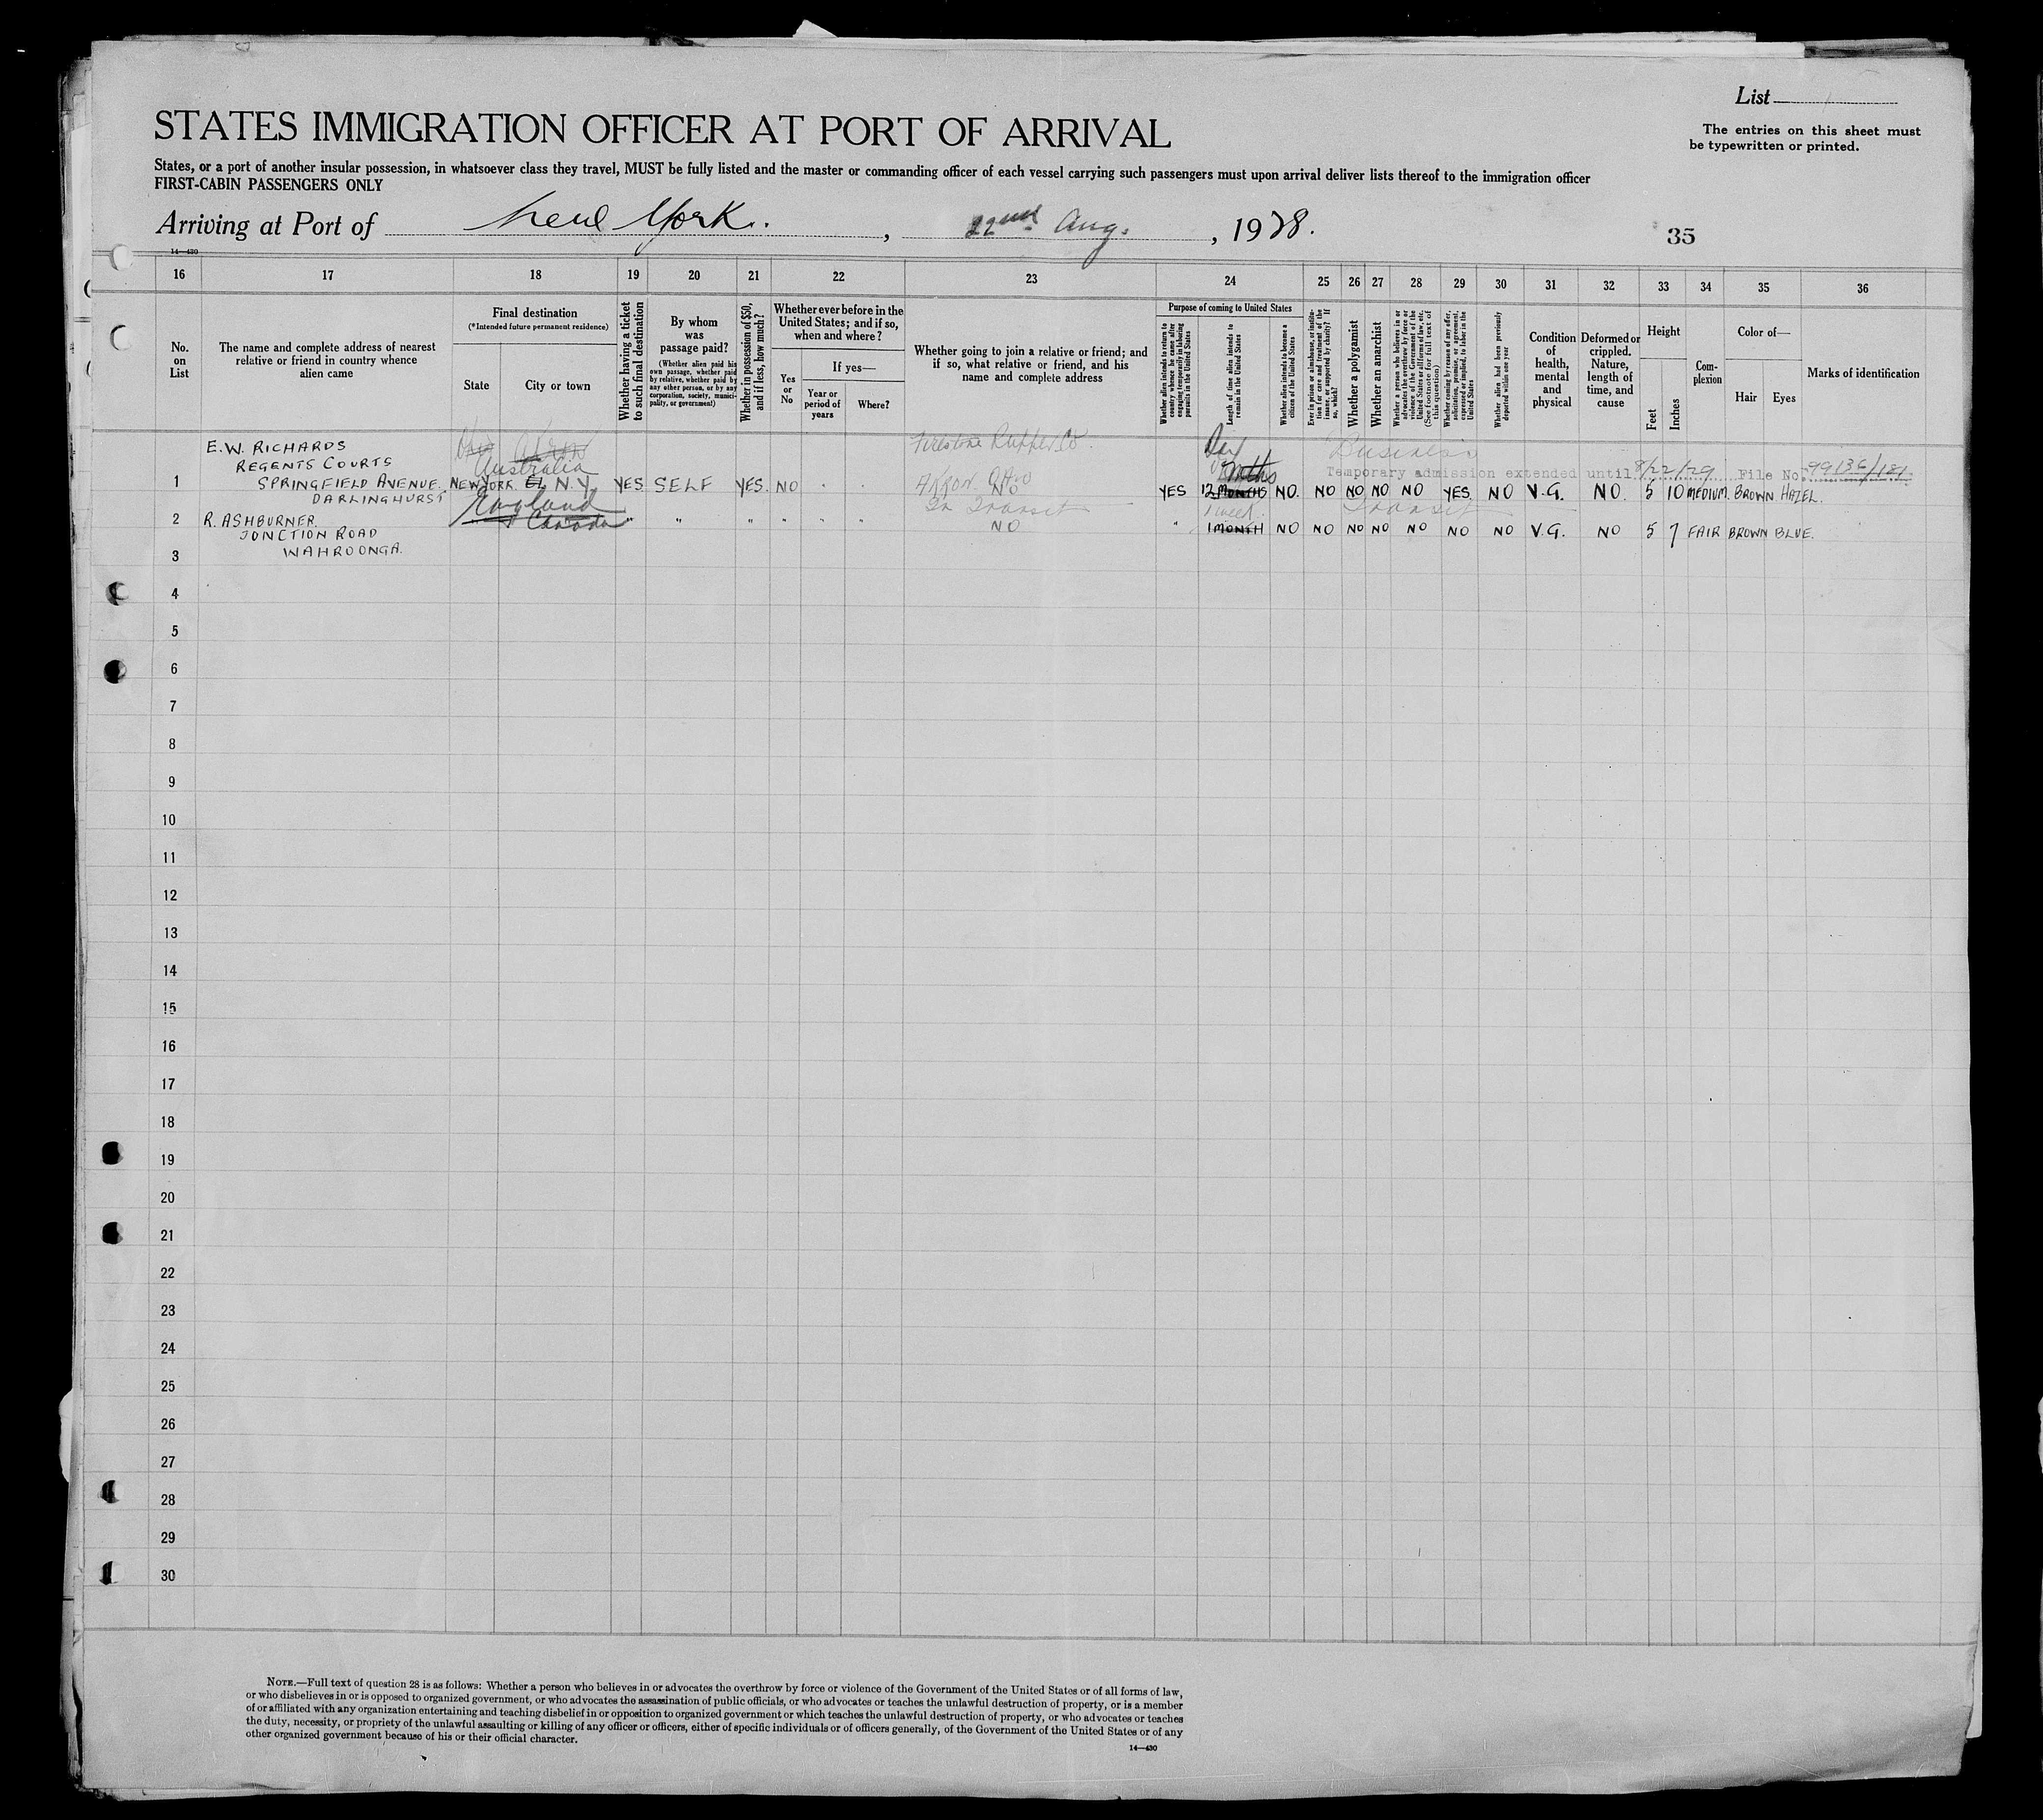 List
The entries on this sheet must
be typewritten or printed.
STATES IMMIGRATION OFFICER AT PORT OF ARRIVAL
States, or a port of another insular possession, in whatsoever class they travel, MUST be fully listed and the master or commanding officer of each vessel carrying such passengers must upon arrival deliver lists thereof to the immigration officer
FIRST-CABIN PASSENGERS ONLY
Arriving at Port of New York. , 22nd Aug. , 1928.
35
14—430
16 17 18 19 20 21 22 23 24 25 26 27 28 29 30 31 32 33 34 35 36
No.
on
List
The name and complete address of nearest
relative or friend in country whence
alien came
Final destination
(*Intended future permanent residence)
State
City or town
Whether having a ticket
to such final destination
By whom
was
passage paid?
(Whether alien paid his
own passage, whether paid
by relative, whether paid by
any other person, or by any
corporation, society, munici-
pality, or government?)
Whether in possession of $50,
and if less, how much?
Whether ever before in the
United States; and if so,
when and where?
Yes
or
No
If yes—
Year or
period of
years
Where?
Whether going to join a relative or friend; and
if so, what relative or friend, and his
name and complete address
Purpose of coming to United States
Whether alien intends to return to
country whence he came after
engaging temporarily in laboring
pursuits in the United States
Length of time alien intends to
remain in the United States
Whether alien intends to become a
citizen of the United States
Ever in prison or almshouse, or institu-
tion for care and treatment of the
insane, or supported by charity? If
so, which?
Whether a polygamist
Whether an anarchist
Whether a person who believes in or
advocates the overthrow by force or
violence of the Government of the
United States or all forms of law, etc.
(See footnote for full text of
this question)
Whether coming because of any offer,
solicitation, promise, or agreement,
expressed or implied, to labor in the
United States
Whether alien had been previously
deported within one year
Condition
of
health,
mental
and
physical
Deformed or
crippled.
Nature,
length of
time, and
cause
Height
Feet
Inches
Com-
plexion
Color of—
Hair
Eyes
Marks of identification
E.W. RICHARDS
REGENTS COURTS
SPRINGFIELD AVENUE.
DARLINGHURST
Ohio Akron
Australia
Firestone Rubber Co.
Akron Ohio
Business
Temporary admission extended until 8/22/29 File No. 99136/181
1 NEW YORK. N.Y. YES. SELF YES. NO NO YES 12 MONTHS NO. NO NO NO NO YES. NO V.G. NO. 5 10 MEDIUM. BROWN HAZEL.
England
Canada
In Transit
1 week.
Transit
2 R. ASHBURNER. " " " " " " NO " 1 MONTH NO NO NO NO NO NO NO V.G. NO 5 7 FAIR BROWN BLUE.
JUNCTION ROAD
WAHROONGA.
3
4
5
6
7
8
9
10
11
12
13
14
15
16
17
18
19
20
21
22
23
24
25
26
27
28
29
30
NOTE.—Full text of question 28 is as follows: Whether a person who believes in or advocates the overthrow by force or violence of the Government of the United States or of all forms of law,
or who disbelieves in or is opposed to organized government, or who advocates the assassination of public officials, or who advocates or teaches the unlawful destruction of property, or is a member
of or affiliated with any organization entertaining and teaching disbelief in or opposition to organized government or which teaches the unlawful destruction of property, or who advocates or teaches
the duty, necessity, or propriety of the unlawful assaulting or killing of any officer or officers, either of specific individuals or of officers generally, of the Government of the United States or of any
other organized government because of his or their official character.
14—430